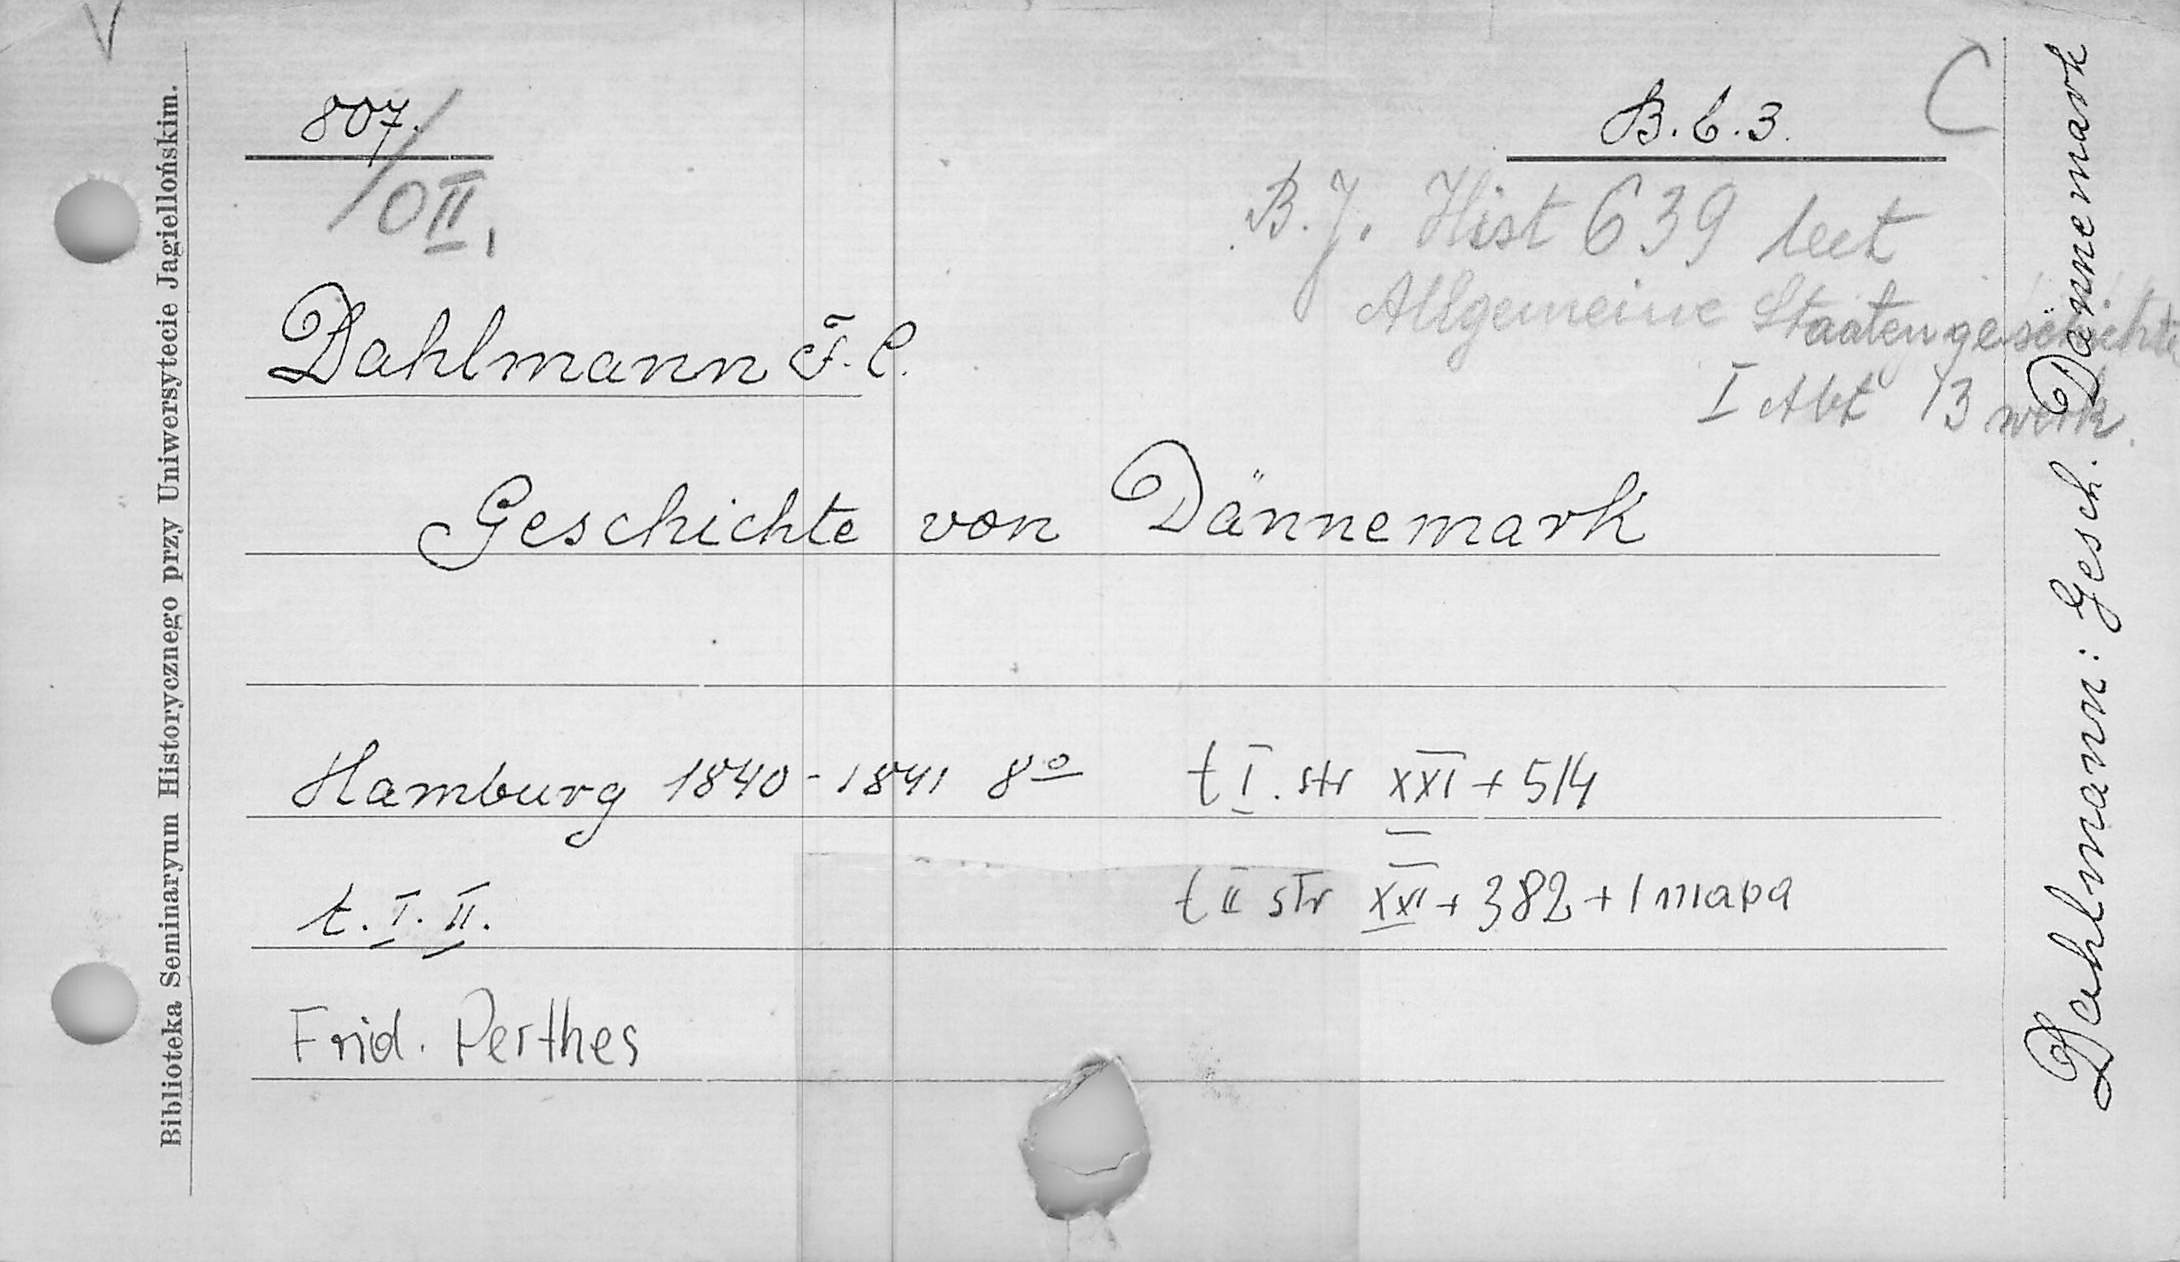 V
807.
/OII,
B.b.3.
C
B.J. Hist 639 lect
Allgemeine Staatengeschichte
I Abt 13 werk.
Dahlmann F. C.
Geschichte von Dännemark
Hamburg 1840-1841 8º t I. str XXI + 514
t. I. II. t II str XII + 382 + 1 mapa
Frid. Perthes
Biblioteka Seminaryum Historycznego przy Uniwersytecie Jagiellońskim.
Dahlmann: Gesch. Dännemark